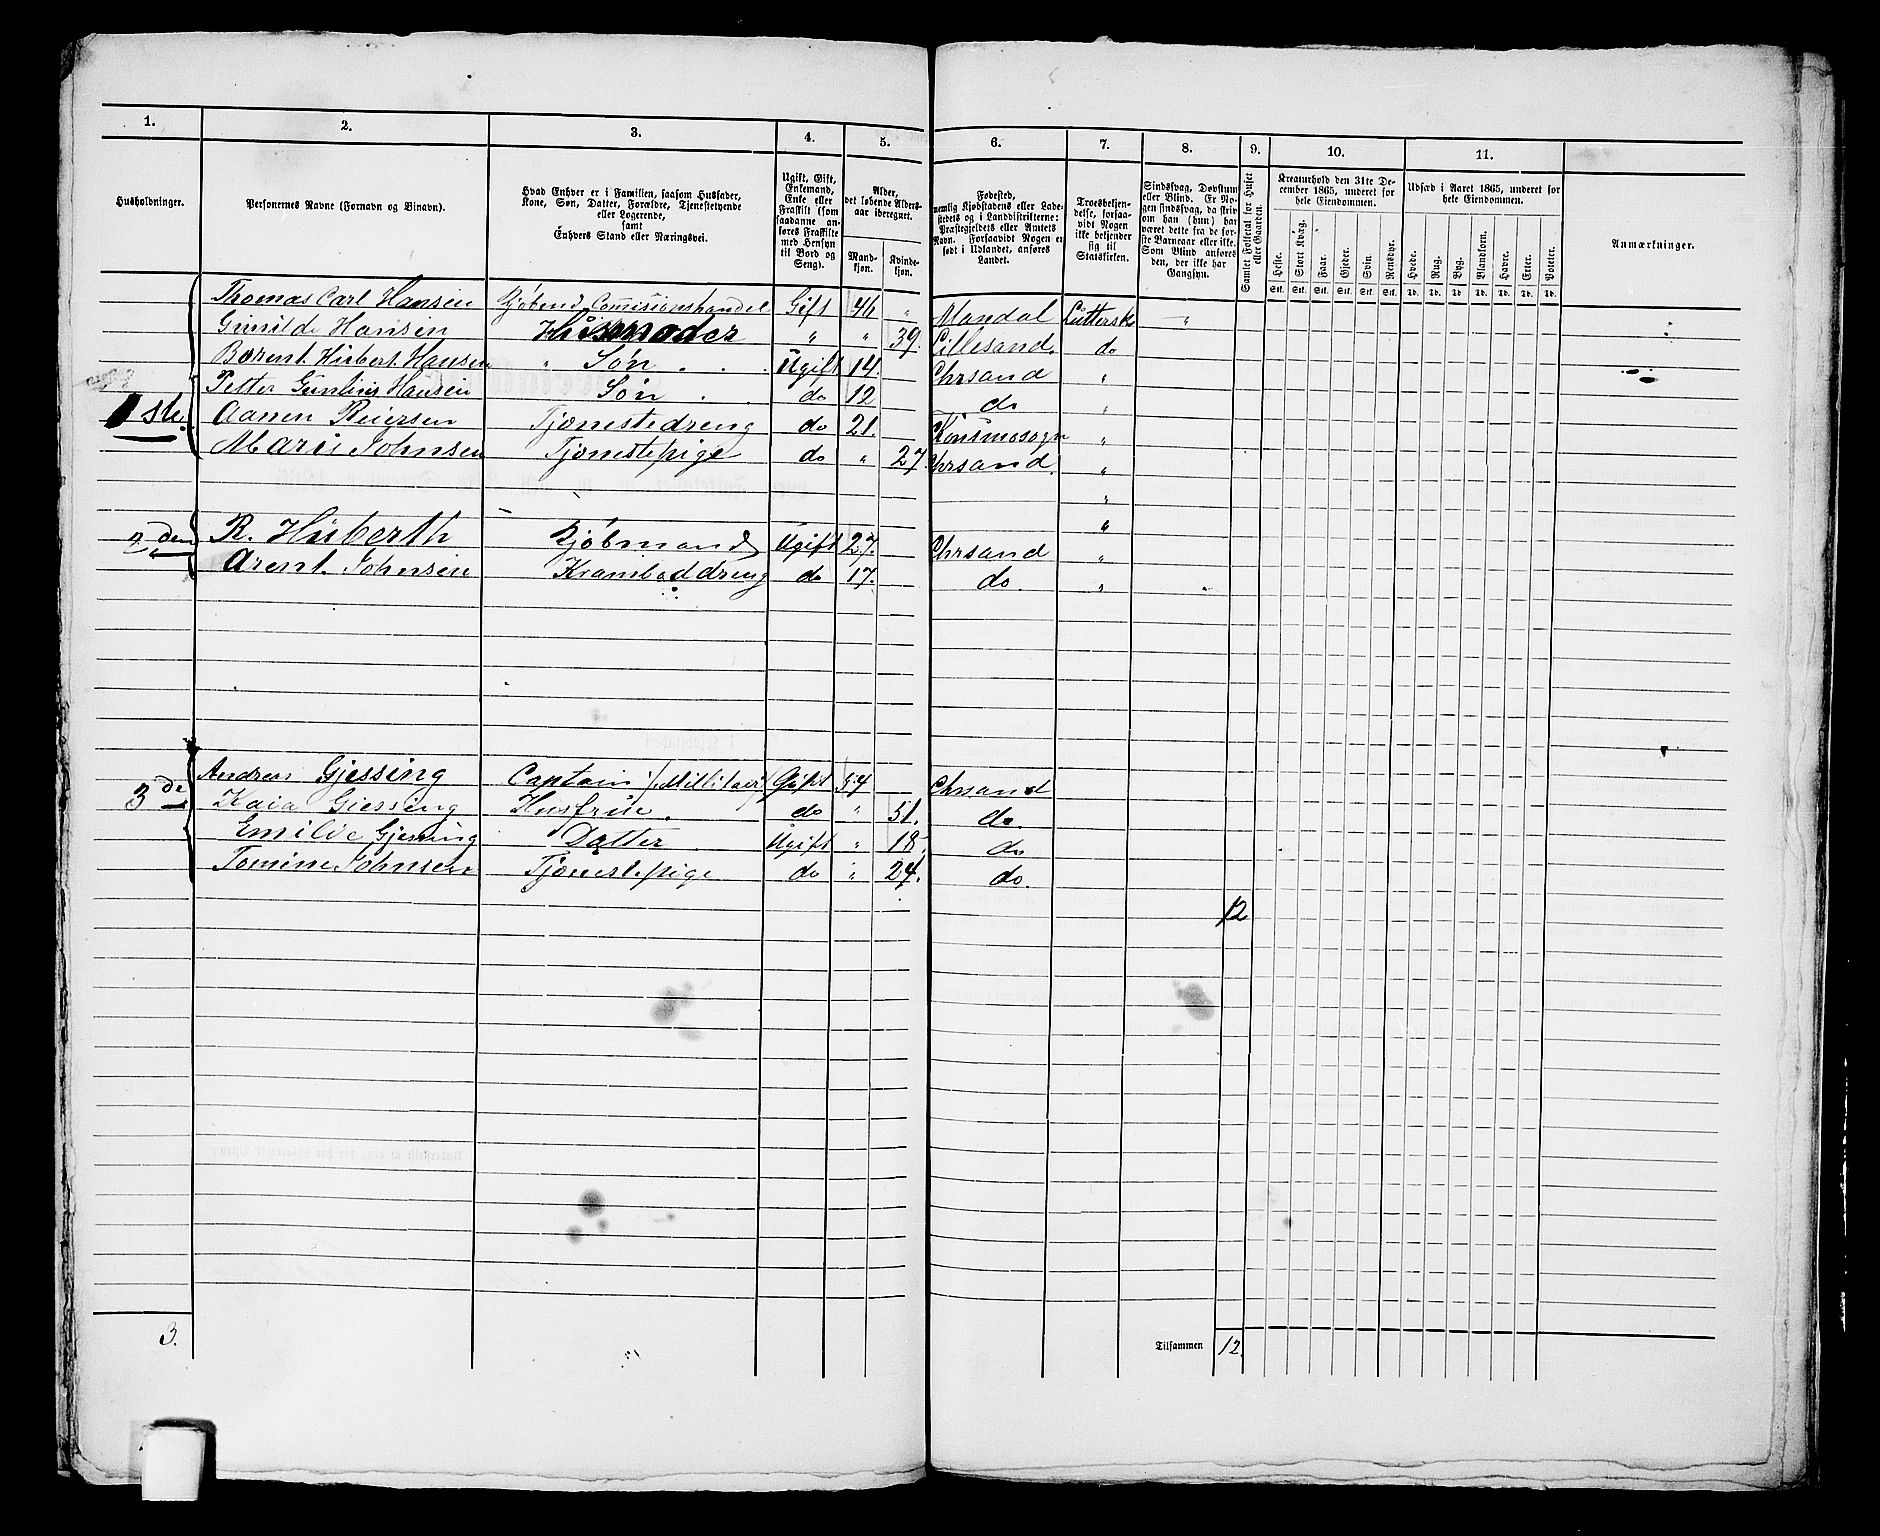 1. 2. 3. 4. 5. 6. 7. 8. 9. 10. 11.
Husholdninger.
Personernes Navne (Fornavn og Binavn).
Hvad Enhver er i Familien, saasom Husfader,
Kone, Søn, Datter, Forældre, Tjenestetyende
eller Logerende,
samt
Enhvers Stand eller Næringsvei.
Ugift, Gift,
Enkemand,
Enke eller
Fraskilt (som
saadanne an-
føres Fraskilte
med Hensyn
til Bord og
Seng).
Alder,
det løbende Alders-
aar iberegnet.
Mand-
kjøn.
Kvinde-
kjøn.
Fødested,
nemlig Kjøbstadens eller Lade-
stedets og i Landdistrikterne:
Præstegjeldets eller Amtets
Navn. Forsaavidt Nogen er
født i Udlandet, anføres
Landet.
Troesbekjen-
delse, forsaa-
vidt Nogen
ikke bekjender
sig til
Statskirken.
Sindssvag, Døvstum
eller Blind. Er No-
gen sindssvag, da skriv
om han (hun) har
været dette fra de før-
ste Barneaar eller ikke.
Som Blind anføres
den, der ikke har
Gangsyn.
Samlet Folketal for Huset
eller Gaarden.
Kreaturhold den 31te De-
cember 1865, underet for
hele Eiendommen.
Heste. Stort Kvæg. Faar. Gjeder. Svin. Rensdyr.
Stk. Stk. Stk. Stk. Stk. Stk.
Udsæd i Aaret 1865, underet for
hele Eiendommen.
Hvede. Rug. Byg. Blandkorn. Havre. Erter. Poteter.
Td. Td. Td. Td. Td. Td. Td.
Anmærkninger.
Thomas Carl Hansen Kjøbmd, Comisionshandel Gift 46 " Mandal Lutterske "
Gunilde Hansen Husmoder " " 39. Lillesand. do
Berent Hubert Hansen " Søn . . . Ugift 14. Chrsand "
Petter Hansen Søn . . do 12 do "
1ste. Aanen Reiersen Tjenestedreng do 21. Konsmosogn "
Marie Johnsen Tjenestepige do " 27 Chrsand. "
"
"
2den R. Huberth Kjøbmand Ugift 27. Chrsand "
Arent Johnsen Kramboddreng do 17. do. "
Andreas Gjessing Captain (Millitair) Gift 54 Chrsand
3de Kaia Giessing Husfrue. do " 51. do.
Emilie Gjessing Datter Ugift " 18 do
Tomine Johnsen Tjenestepige do " 24. do.
12
3.
Tilsammen 12.